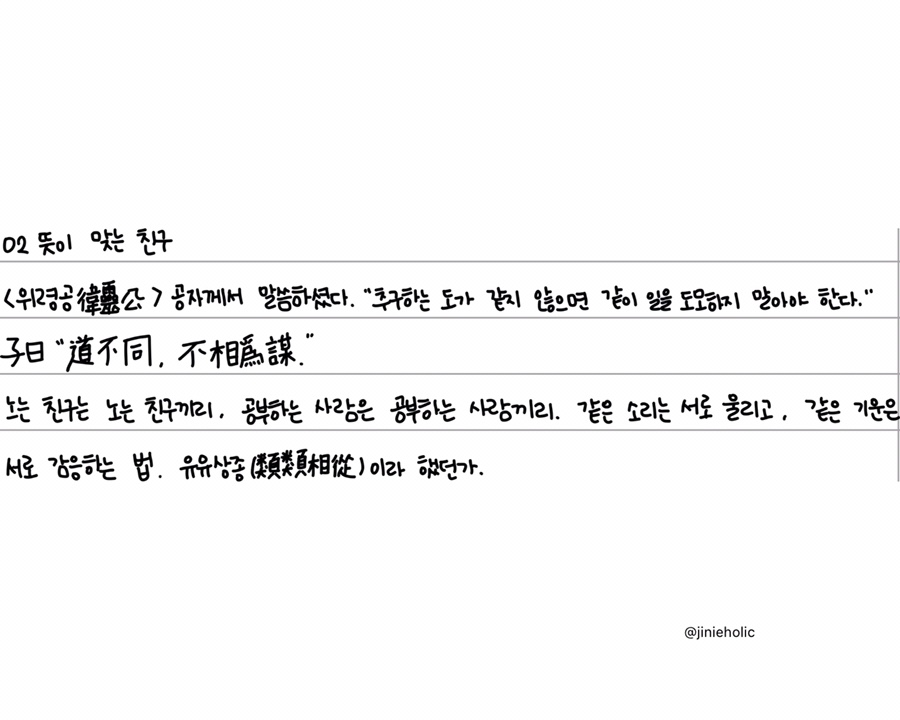 02 뜻이 맞는 친구
<위령공衛靈公> 공자께서 말씀하셨다. "추구하는 도가 같지 않으면 같이 일을 도모하지 말아야 한다."
子曰 "道不同, 不相爲謀."
노는 친구는 노는 친구끼리, 공부하는 사람은 공부하는 사람끼리. 같은 소리는 서로 울리고, 같은 기운은
서로 감응하는 법. 유유상종(類類相從)이라 했던가.
@jinieholic